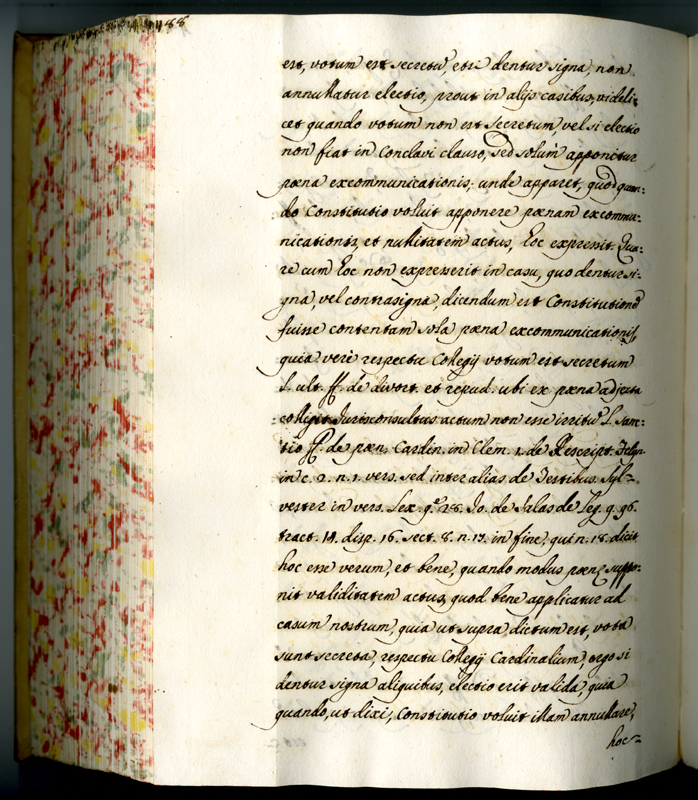 est, votum est secretū, etsi dentur signa, non
annullatur electio, prout in alijs casibus, videli-
cet quando votum non est secretum, vel si electio
non fiat in Conclavi clauso, sed solum apponitur
pœna excommunicationis; unde apparet, quod quan:
do Constitutio voluit apponere pœnam excommu:
nicationis, et nullitatem actus, hoc expressit. Qua:
re cum hoc non expresserit in casu, quo dentur si:
gna, vel contrasigna, dicendum est Constitutionē
fuisse contentam sola pœna excommunicationis,
quia verè respectu Collegij votum est secretum
l. ult. ff. de divort. et repud. ubi ex pœna adjecta
colligit Jurisconsultus actum non esse irritū. l. sanc-
tio ff. de pœn. Cardin. in Clem. 1. de Rescript. Felyn.
in c. 2. n. 1. vers. sed inter alias de Testibus. Syl-
vester in vers. Lex q. 28. Jo. de Salas de Leg. q. 96.
tract. 14. disp. 16. sect. 8. n. 17. in fine, qui n. 18. dicit
hoc esse verum, et bene, quando modus pœnę suppo:
nit validitatem actus, quod bene applicatur ad
casum nostrum, quia ut supra dictum est, vota
sunt secreta, respectu Collegij Cardinalium, ergo si
dentur signa aliquibus, electio erit valida, quia
quando, ut dixi, Constitutio voluit illam annullare,
hoc